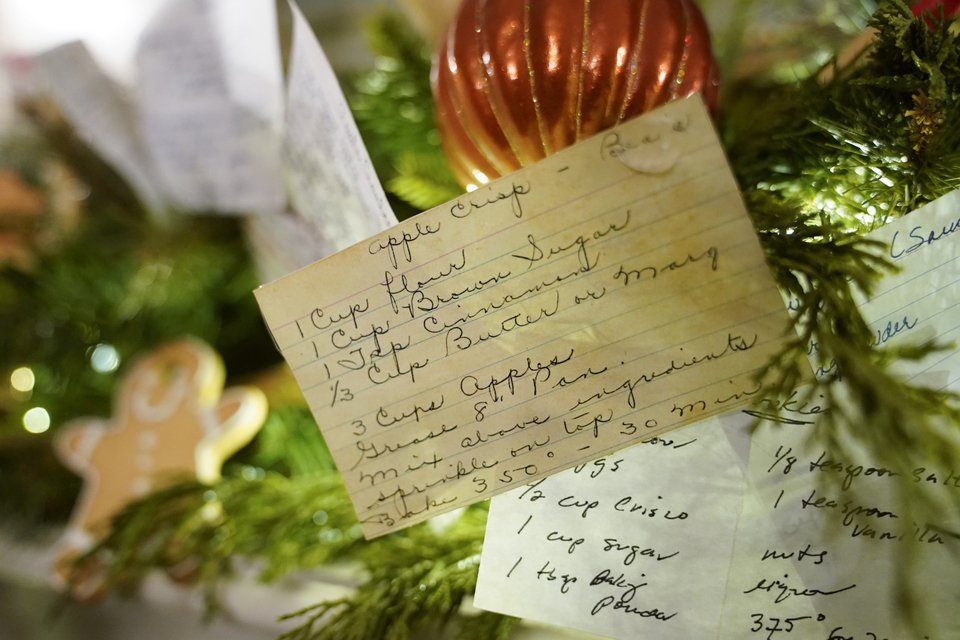 apple Crisp -
1 Cup flour
1 Cup Brown Sugar
1 Tsp Cinnamon
1/3 Cup Butter or Marg
3 Cups apples
Grease 8" Pan.
mix above ingredients
sprinkle on top
Bake 350° - 30 min
1/2 cup Crisco
1 cup sugar
1 tsp Baking
Powder
1/8 teaspoon Salt
1 teaspoon
Vanilla
nuts
375°